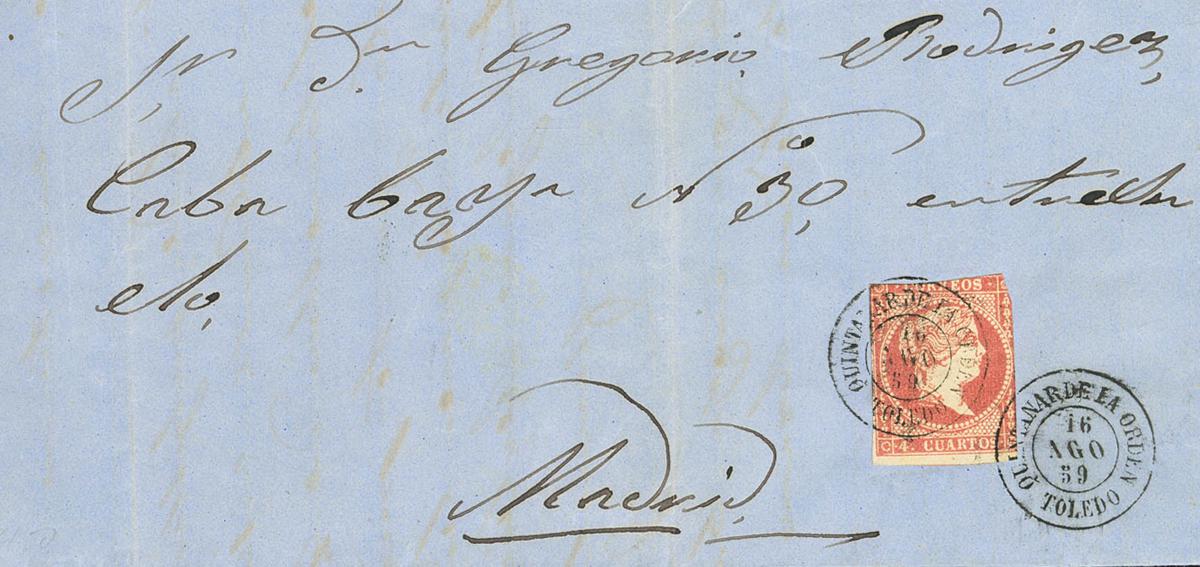 Sr. Dn Gregorio Rodrigez,
Caba baja N 30, entresu
elo,
Madrid.
CORREOS
4. CUARTOS
QUINTANAR DE LA ORDEN
16
AGO
59
TOLEDO
QUINTANAR DE LA ORDEN
16
AGO
59
TOLEDO